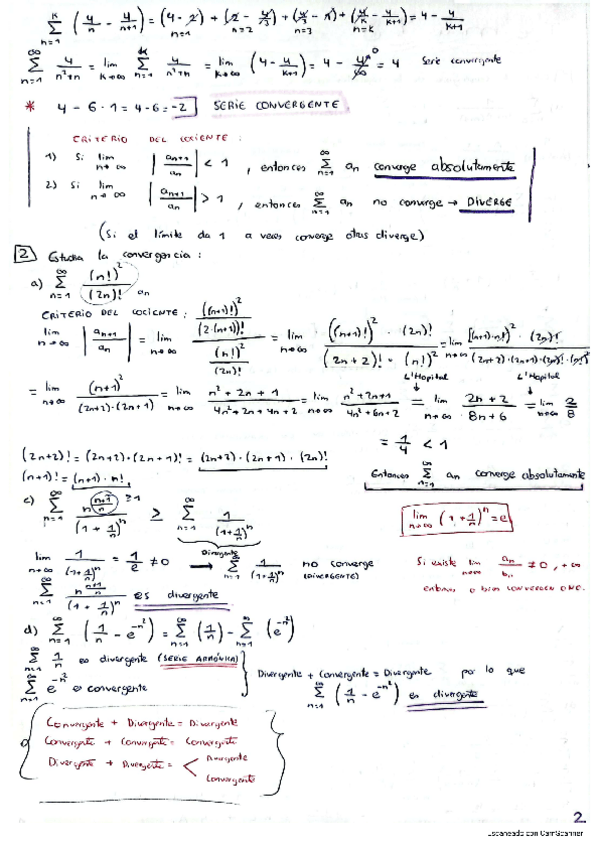 ∑_{n=1}^{k} (4/n - 4/(n+1)) = (4 - 2) + (2 - 4/3) + (4/3 - 1) + (4/k - 4/(k+1)) = 4 - 4/(k+1)
n=1 n=2 n=3 n=k
∑_{n=1}^{∞} 4/(n²+n) = lim_{k→∞} ∑_{n=1}^{k} 4/(n²+n) = lim_{k→∞} (4 - 4/(k+1)) = 4 - 4/∞ ⁰ = 4 Serie convergente
* 4 - 6 · 1 = 4 - 6 = -2 SERIE CONVERGENTE
CRITERIO DEL COCIENTE :
1) Si lim_{n→∞} |a_{n+1}/a_n| < 1 , entonces ∑_{n=1}^{∞} an converge absolutamente
2) Si lim_{n→∞} |a_{n+1}/a_n| > 1 , entonces ∑_{n=1}^{∞} an no converge → DIVERGE
(Si el límite da 1 a veces converge otras diverge)
2 Estudia la convergencia :
a) ∑_{n=1}^{∞} (n!)²/(2n)! an
CRITERIO DEL COCIENTE :
lim_{n→∞} |a_{n+1}/a_n| = lim_{n→∞} (((n+1)!)²/(2·(n+1))!)/((n!)²/(2n)!) = lim_{n→∞} ((n+1)!)² · (2n)!/((2n+2)! · (n!)²) = lim_{n→∞} [(n+1)·n!]² · (2n)!/((2n+2)·(2n+1)·(2n)!·(n!)²)
= lim_{n→∞} (n+1)²/((2n+2)·(2n+1)) = lim_{n→∞} (n²+2n+1)/(4n²+2n+4n+2) = lim_{n→∞} (n²+2n+1)/(4n²+6n+2) = lim_{n→∞} (2n+2)/(8n+6) = lim_{n→∞} 2/8
L'Hopital L'Hopital
= 1/4 < 1
(2n+2)! = (2n+2)·(2n+1)! = (2n+2)·(2n+1)·(2n)!
(n+1)! = (n+1)·n!
Entonces ∑_{n=1}^{∞} an converge absolutamente
c) ∑_{n=1}^{∞} n^{(n+1)/n}/(1+1/n)^n ≥ ∑_{n=1}^{∞} 1/(1+1/n)^n
≥1
Divergente
lim_{n→∞} (1+1/n)^n = e
lim_{n→∞} 1/(1+1/n)^n = 1/e ≠ 0 → ∑_{n=1}^{∞} 1/(1+1/n)^n no converge (DIVERGENTE)
Si existe lim_{n→∞} an/bn ≠ 0, +∞
entonces o bien convergen o no.
∑_{n=1}^{∞} n^{(n+1)/n}/(1+1/n)^n es divergente
d) ∑_{n=1}^{∞} (1/n - e^{-n²}) = ∑_{n=1}^{∞} (1/n) - ∑_{n=1}^{∞} (e^{-n²})
∑_{n=1}^{∞} 1/n es divergente (SERIE ARMÓNICA)
∑_{n=1}^{∞} e^{-n²} es convergente
Divergente + Convergente = Divergente por lo que
∑_{n=1}^{∞} (1/n - e^{-n²}) es divergente
Convergente + Divergente = Divergente
Convergente + Convergente = Convergente
Divergente + Divergente = < Divergente
Convergente
2
Escaneado con CamScanner